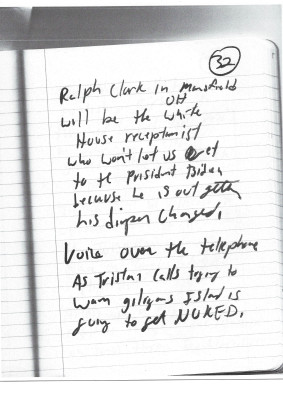 32
Ralph Clark in Mansfield
OH
will be the White
House receptionist
who won't let us get
to the President Biden
because he is out getting
his diaper changed.
Voice over the telephone
As Tristan calls trying to
warn giligans Island is
going to get NUKED.